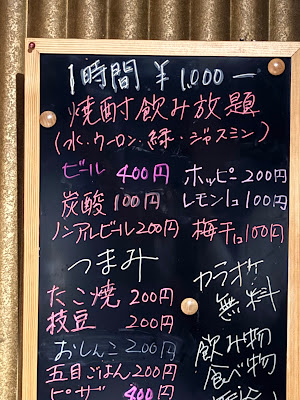 1時間 ¥1,000-
焼酎飲み放題
(水・ウーロン・緑・ジャスミン)
ビール 400円
ホッピ 200円
炭酸 100円
レモン1コ 100円
ノンアルビール200円
梅干1コ100円
つまみ
たこ焼 200円
枝豆 200円
おしんこ200円
五目ごはん200円
ピザ 400円
カラオケ
無料
飲み物
食べ物